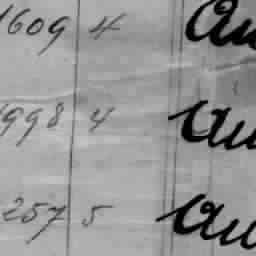 1609 4 Au
1998 4 Au
257 5 Au